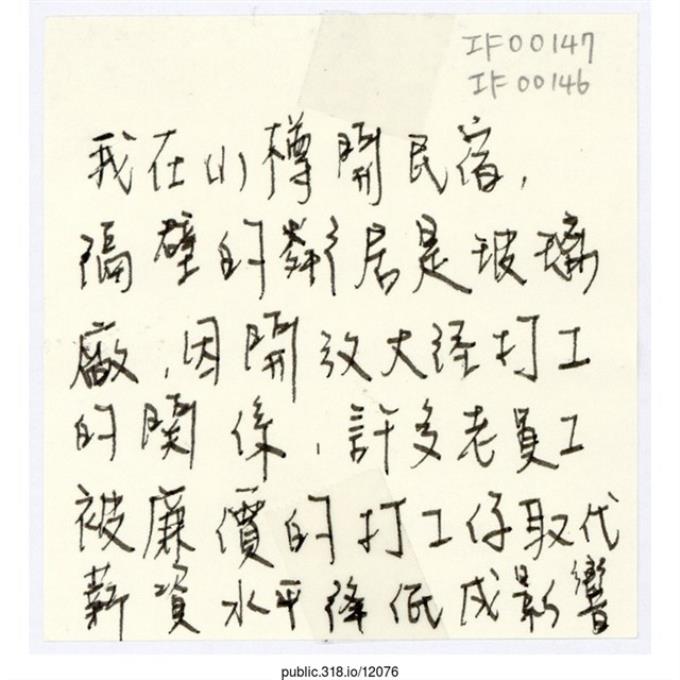 IF00147
IF00146
我在小樽開民宿，
隔壁的鄰居是玻璃
廠，因開放大陸打工
的關係，許多老員工
被廉價的打工仔取代
薪資水平降低成影響
public.318.io/12076